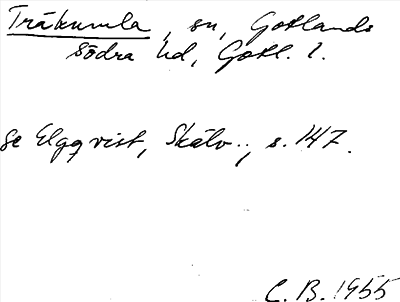 Träkumla, sn, Gotlands
södra hd, Gotl. l.
se Elgqvist, Skälv., s. 147.
C. B. 1955